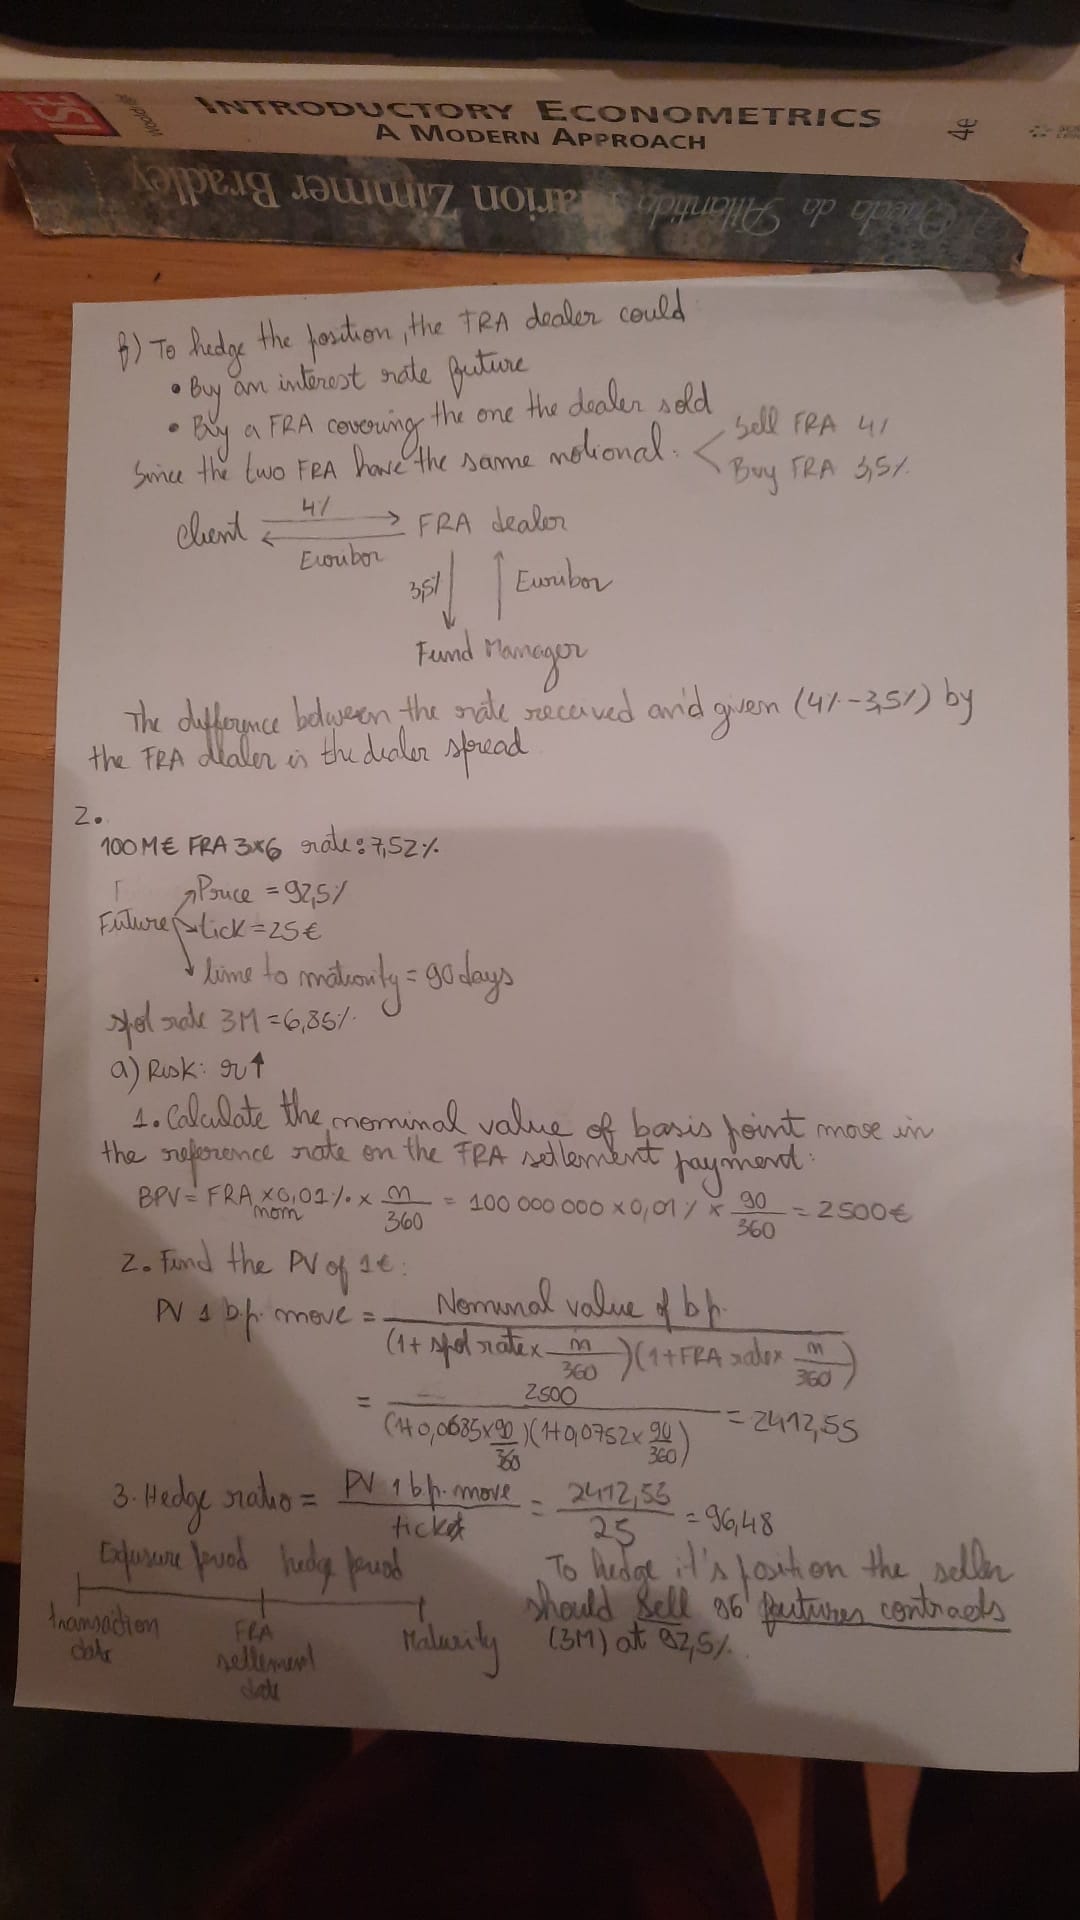 INTRODUCTORY ECONOMETRICS
A MODERN APPROACH
4e
Queda da Atlântida Marion Zimmer Bradley
b) To hedge the position, the FRA dealer could
• Buy an interest rate future
• Buy a FRA covering the one the dealer sold
Since the two FRA have the same notional: < Sell FRA 4%
Buy FRA 3,5%
Client 4% → FRA dealer
← Euribor
3,5% ↓ ↑ Euribor
Fund Manager
The difference between the rate received and given (4%-3,5%) by
the FRA dealer is the dealer spread
2.
100M€ FRA 3×6 rate: 7,52%
Price = 92,5%
Future tick = 25€
time to maturity = 90 days
spot rate 3M = 6,85%
a) Risk: r↑
1. Calculate the nominal value of basis point move in
the reference rate on the FRA setlement payment:
BPV = FRA nom × 0,01% × m/360 = 100 000 000 × 0,01% × 90/360 = 2500€
2. Find the PV of 1€:
PV 1 b.p. move = Nominal value of b.p. / (1 + spot rate × m/360)(1 + FRA rate × m/360)
= 2500 / (1+0,0685×90/360)(1+0,0752×90/360) = 2412,55
3. Hedge ratio = PV 1 b.p. move / ticket = 2412,55 / 25 = 96,48
Exposure period hedge period
transaction date
FRA setlement date
Maturity
To hedge it's position the seller
should sell 96 futures contracts
(3M) at 92,5%.